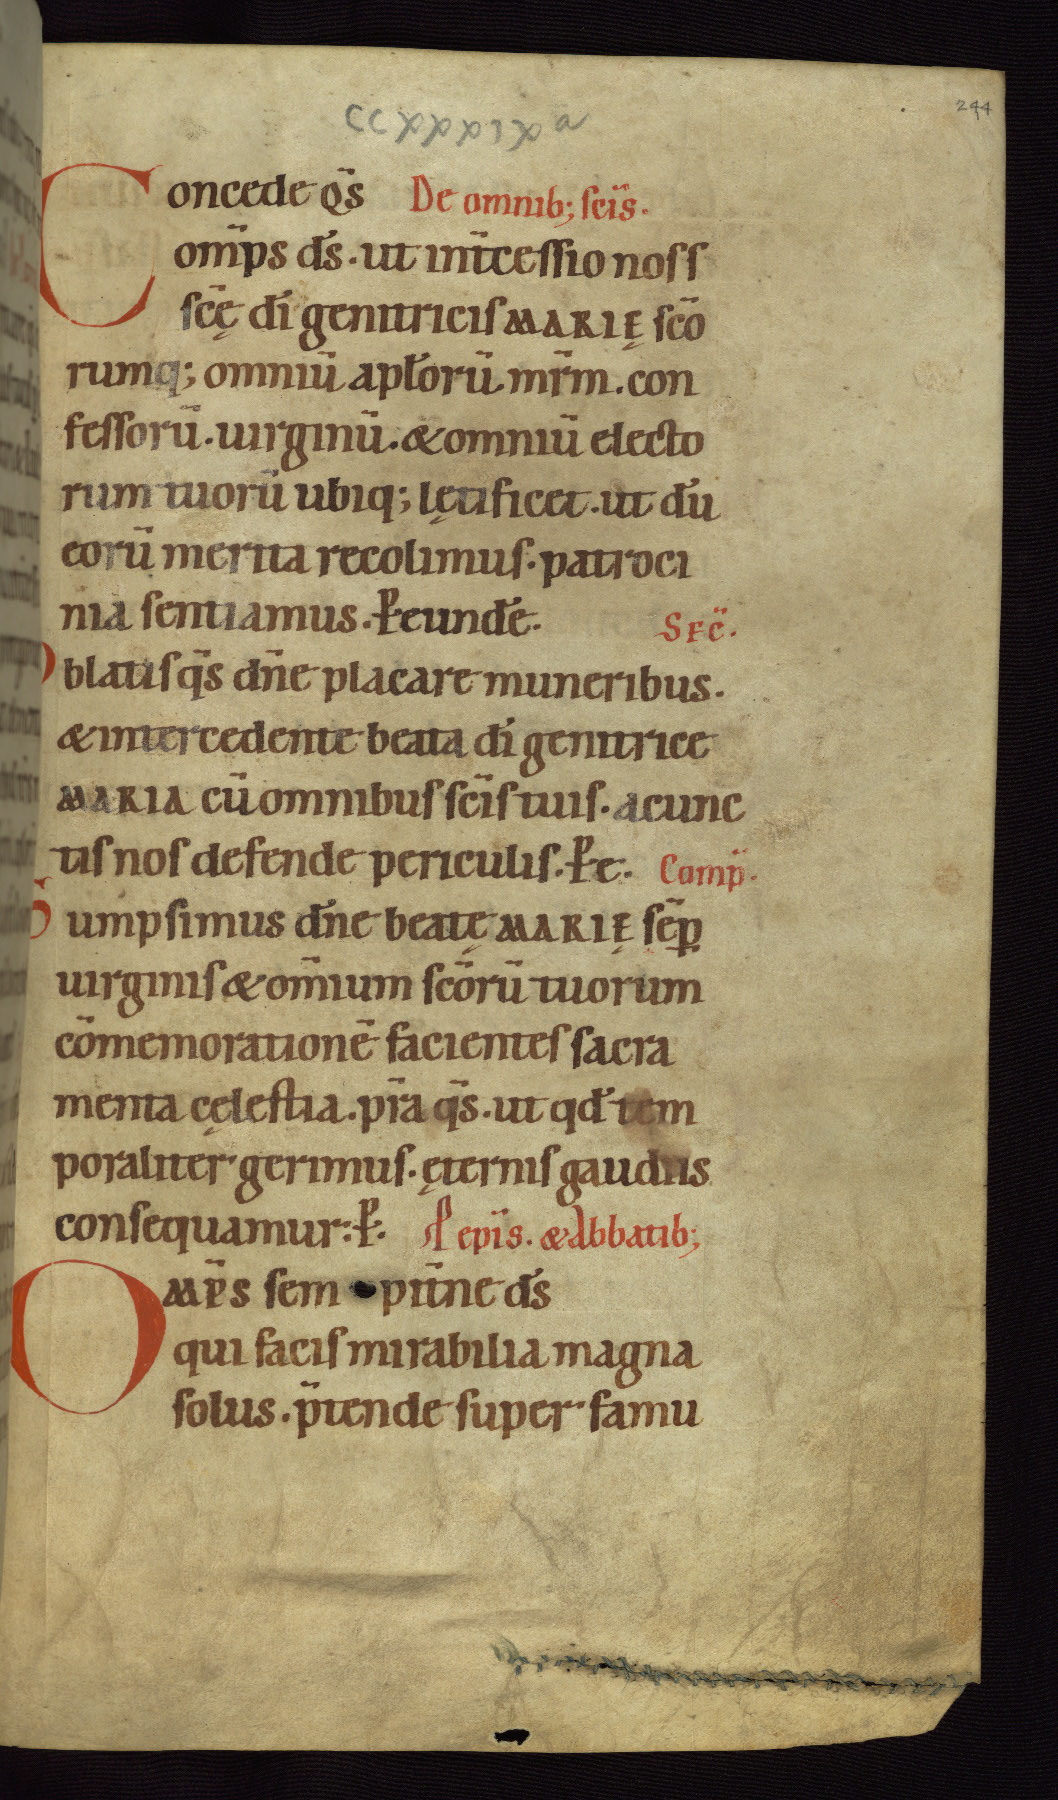 244
ccxxxixa
Concede q̄s De omnib; scīs.
om̄ps ds̄. ut int̄cessio nos s
scę̄ dī genitricis MARIĘ scō
rumq; omniū apl̄orū mr̄m. con
fessorū. uirginū. & omniū electo
rum tuorū ubiq; lętificet. ut dū
eorū merita recolimus. patroci
nia sentiamus. P̱ eundē. SEC̄.
Oblatis q̄s dn̄e placare muneribus.
& intercedente beata dī genitrice
MARIA cū omnibus scīs tuis. a cunc
tis nos defende periculis. P̱ e. Comp̄.
Sumpsimus dn̄e beatę MARIĘ sēp̱
uirginis & om̄ium scōrū tuorum
cōmemorationē facientes sacra
menta cęlestia. pr̄a q̄s. ut qd̄ tem
poraliter gerimus. ęternis gaudiis
consequamur: P̱. P̱ epīs. & Abbatib;
OMP̄S sem pit̄ne ds̄
qui facis mirabilia magna
solus. p̄tende super famu